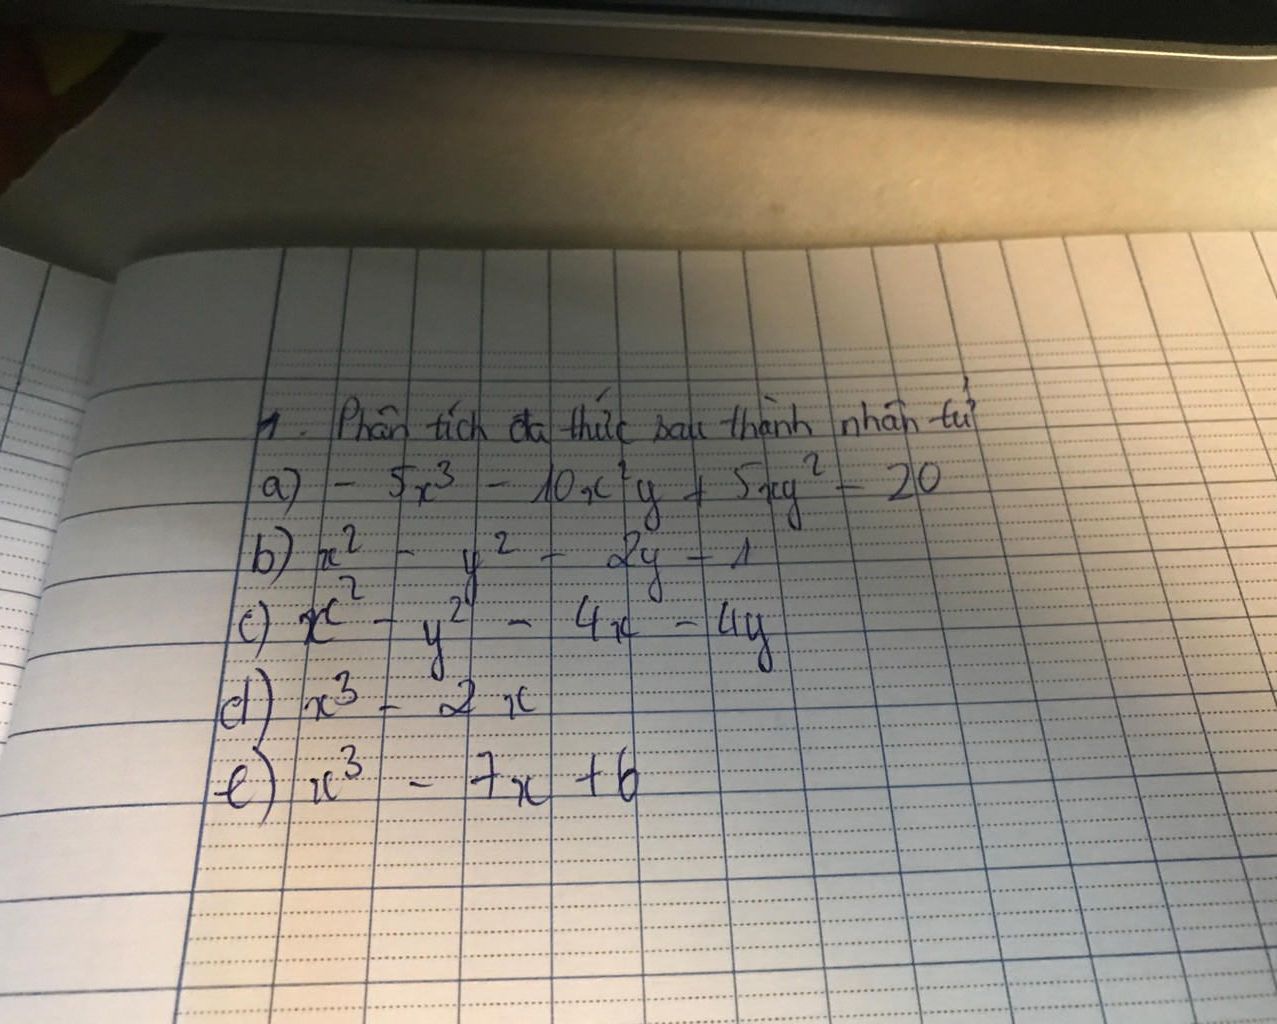 1. Phân tích đa thức sau thành nhân tử
a) - 5x³ - 10x²y + 5xy² - 20
b) x² - y² - 2y - 1
c) x² - y² - 4x - 4y
d) x³ - 2x
e) x³ - 7x + 6